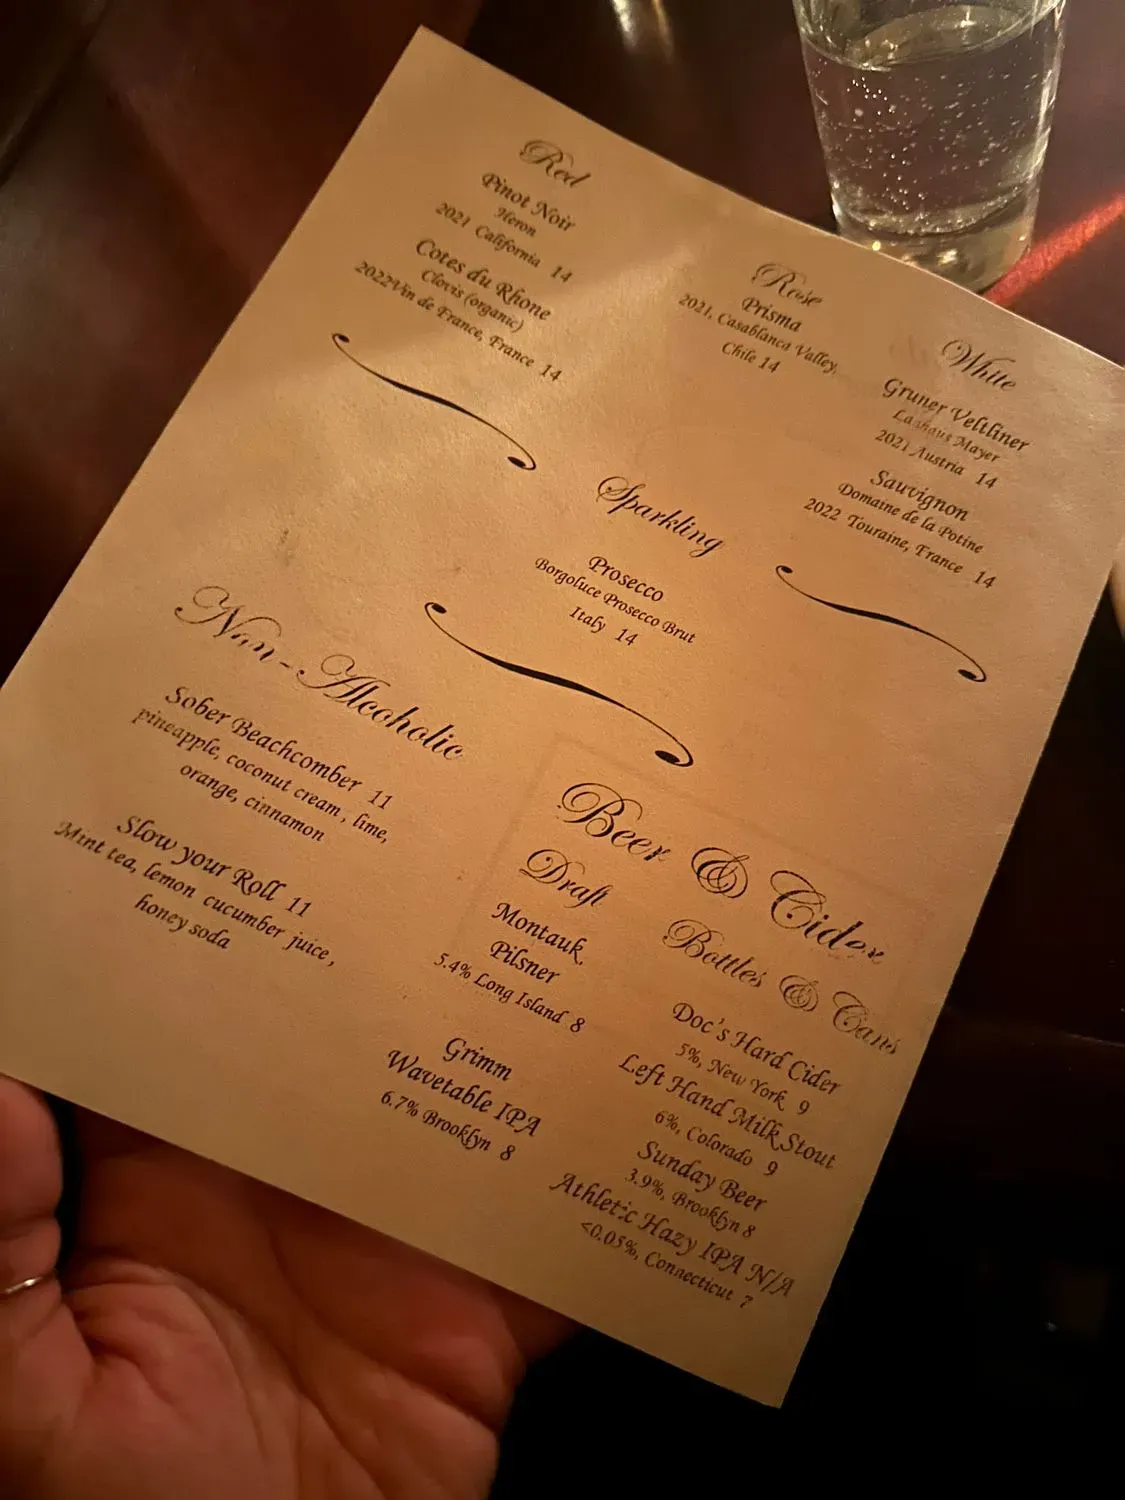 Red
Pinot Noir
Heron
2021 California 14
Cotes du Rhone
Clovis (organic)
2022Vin de France, France 14
Rose
Prisma
2021, Casablanca Valley,
Chile 14
White
Gruner Veltliner
Mayer
2021 Austria 14
Sauvignon
Domaine de la Potine
2022 Touraine, France 14
Sparkling
Prosecco
Borgoluce Prosecco Brut
Italy 14
Non-Alcoholic
Sober Beachcomber 11
pineapple, coconut cream , lime,
orange, cinnamon
Slow your Roll 11
Mint tea, lemon cucumber juice ,
honey soda
Beer & Cider
Draft
Montauk
Pilsner
5.4% Long Island 8
Grimm
Wavetable IPA
6.7% Brooklyn 8
Bottles & Cans
Doc's Hard Cider
5%, New York 9
Left Hand Milk Stout
6%, Colorado 9
Sunday Beer
3.9%, Brooklyn 8
Athletic Hazy IPA N/A
<0.05%, Connecticut 7